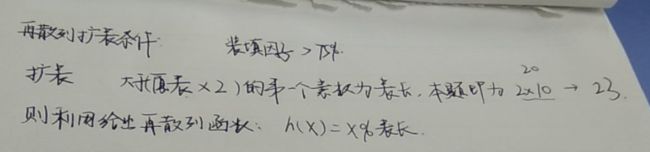 再散列扩表条件: 装填因子 > 75%.
扩表 大于(原表×2)的第一个素数为表长, 本题即为 2×10 → 23.
20
则利用给出再散列函数: h(X) = X % 表长.